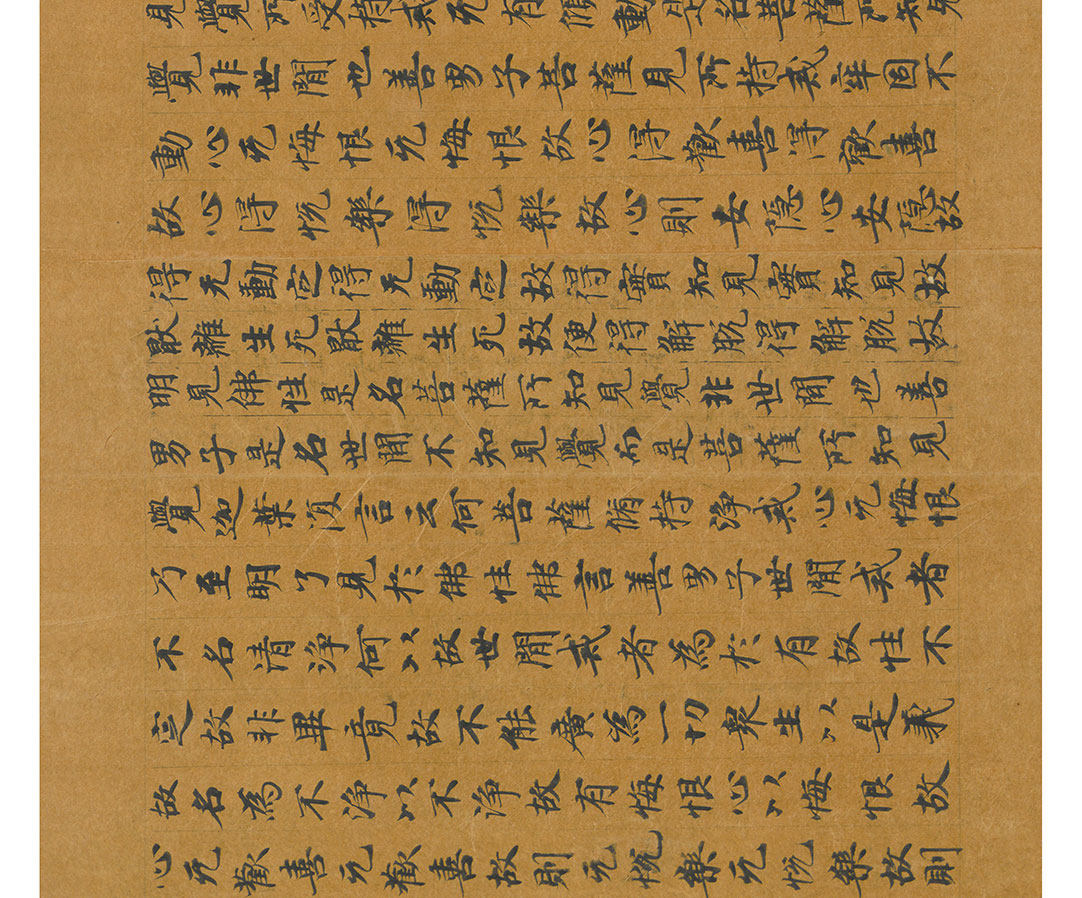 見覺所受持戒无有傾動是名菩薩所知見
覺非世間也善男子菩薩見所持戒牢固不
動心无悔恨无悔恨故心得歡喜得歡喜
故心得悅樂得悅樂故心則安隱心安隱故
得无動定得无動定故得實知見實知見故
猒離生死猒離生死故便得解脫得解脫故
明見佛性是名菩薩所知見覺非世間也善
男子是名世間不知見覺而是菩薩所知見
覺迦葉復言云何菩薩脩持淨戒心无悔恨
乃至明了見於佛性佛言善男子世間戒者
不名清淨何以故世間戒者為於有故性不
定故非畢竟故不能廣為一切衆生以是義
故名為不淨以不淨故有悔恨心以悔恨故
心无歡喜无歡喜故則无悅樂无悅樂故則